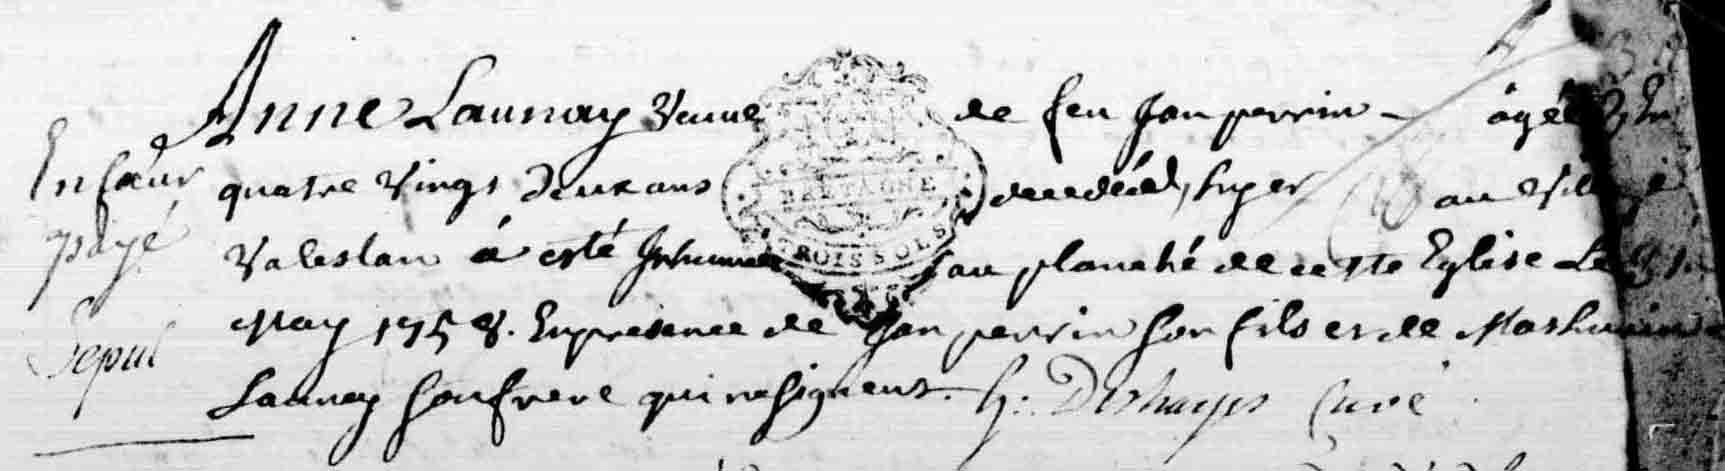 Anne Launay Veuve de feu Jan perrin - âgée d'En
Enfeux quatre Vings deux ans decedée hyer au Village
payé Valeslan á esté Inhumée au planché de cette Eglise Le
May 1758. En presence de Jan perrin son fils et de Mathurin
Sepul Launay son frere qui ne signent. h. Deshayes Curé
BRETAGNE
TROIS SOLS